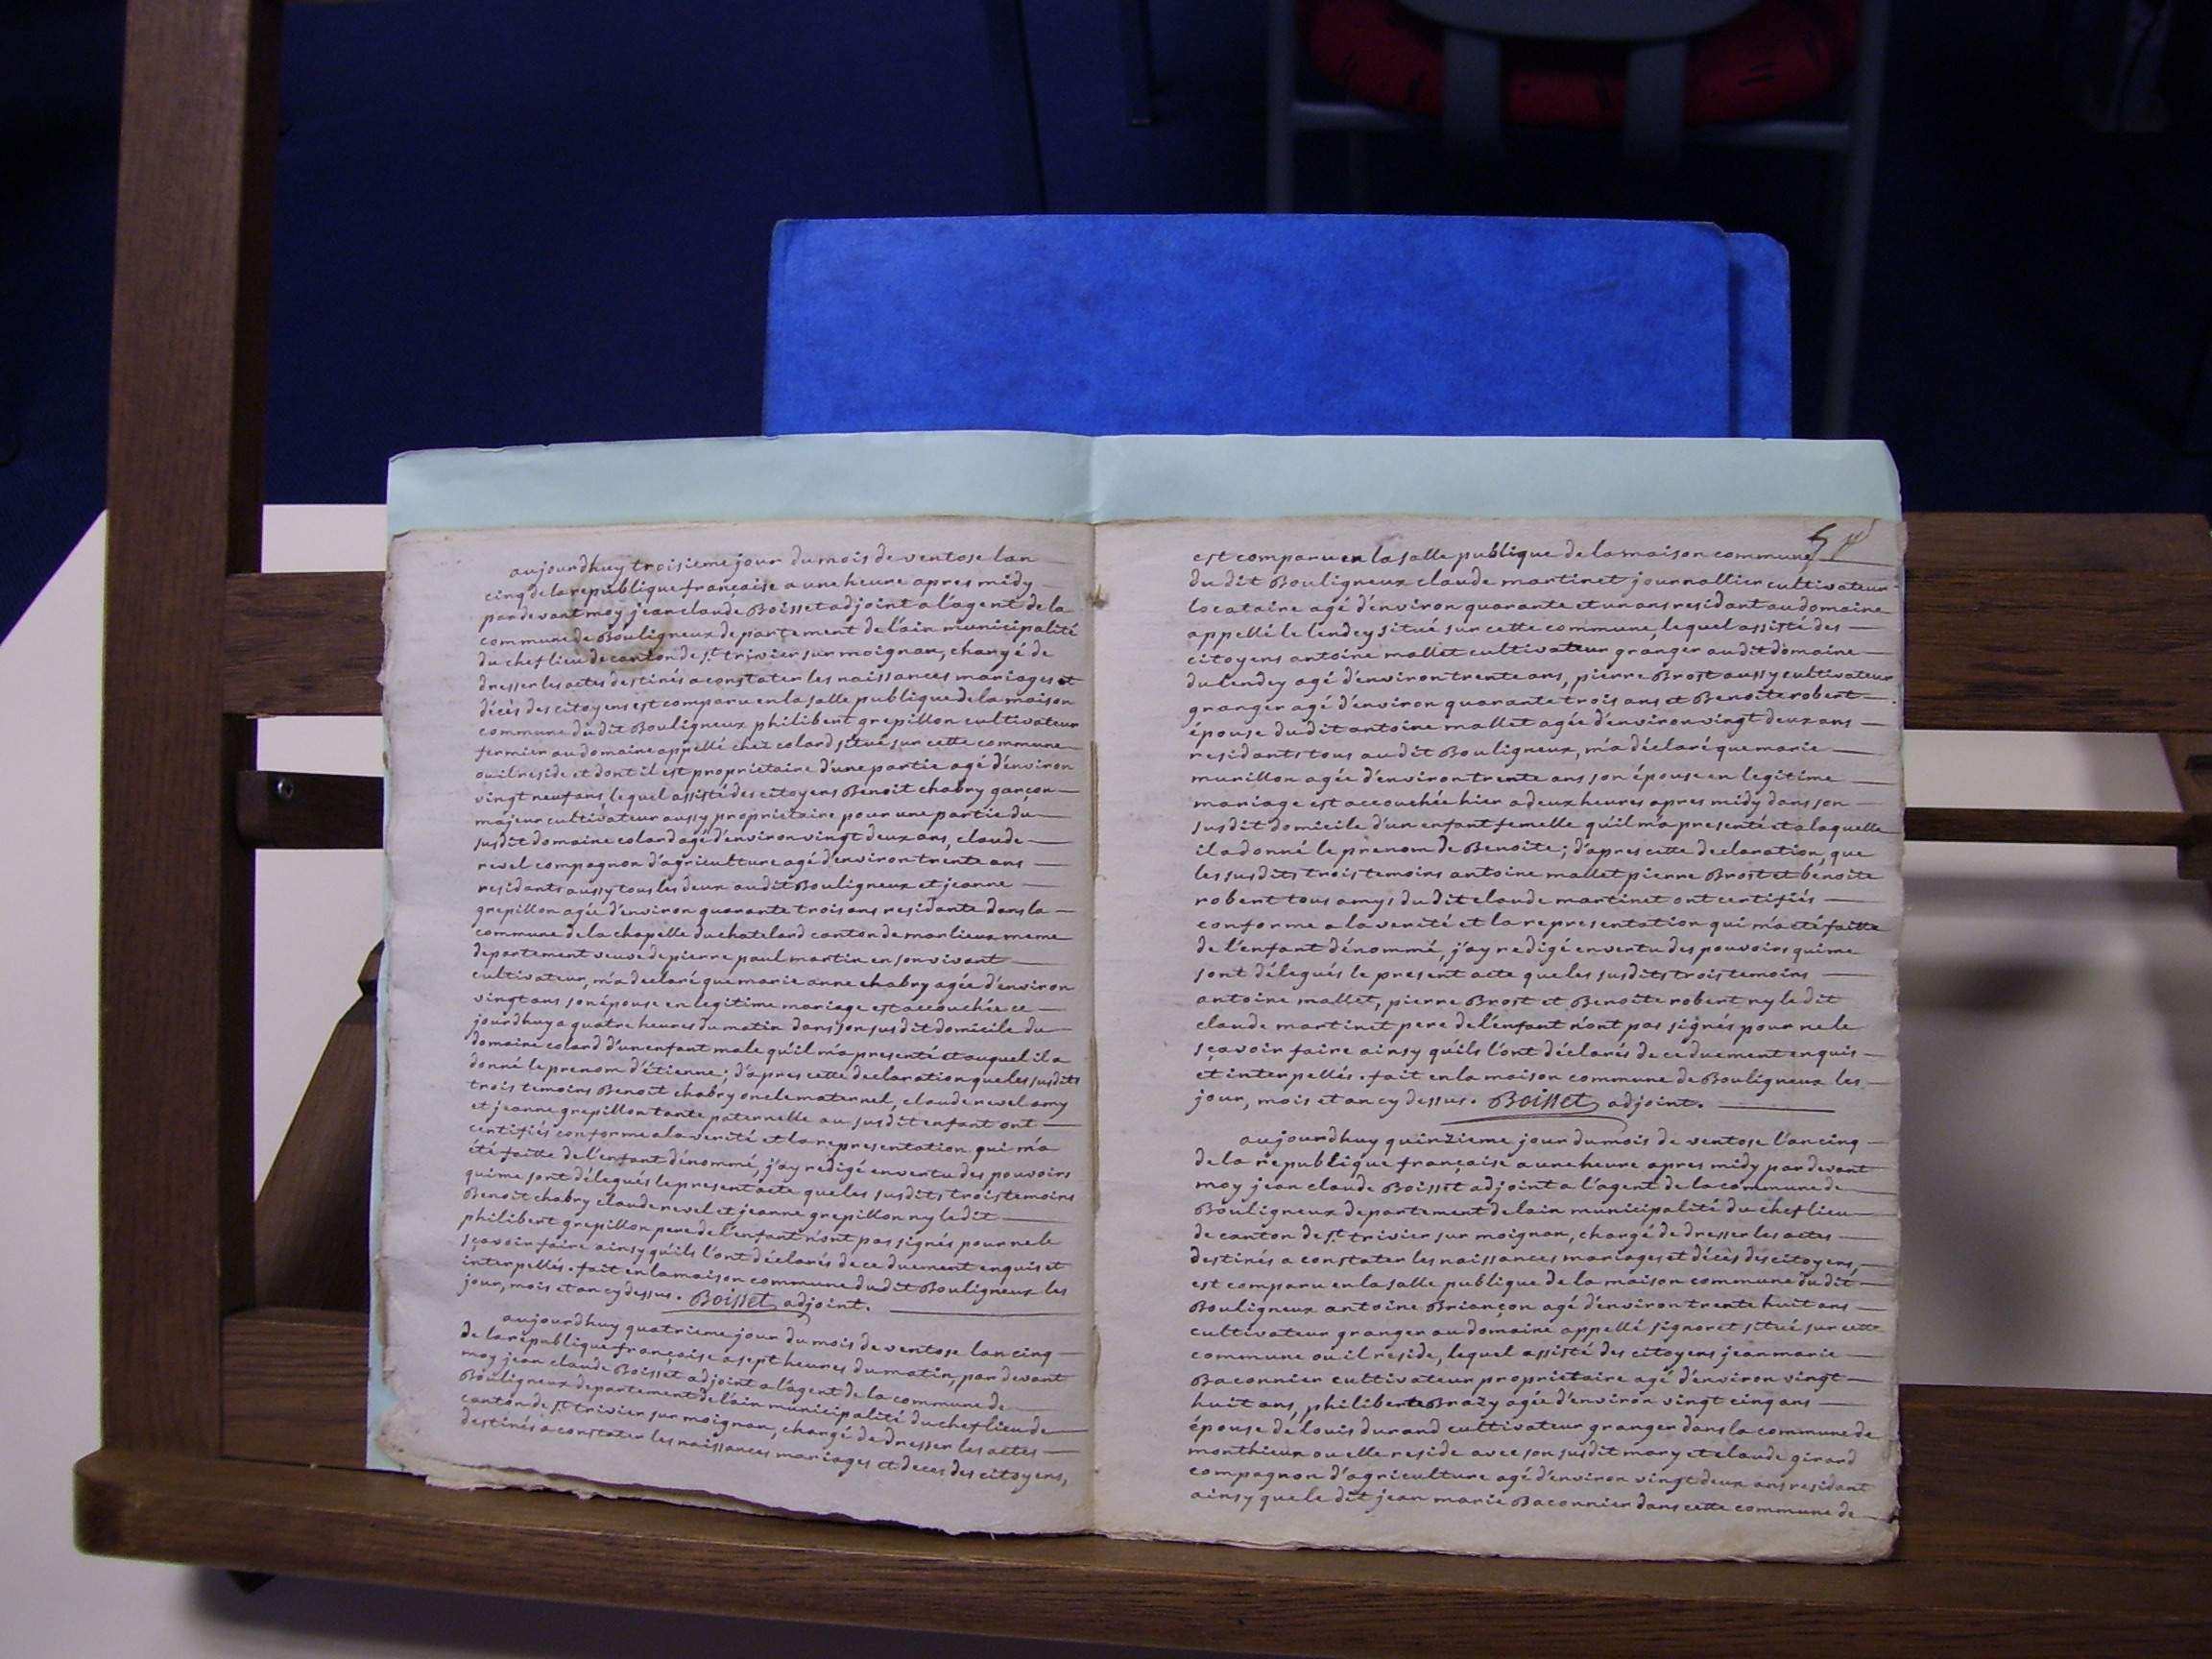 aujourdhuy troisieme jour du mois de ventose lan
cinq de la republique française a une heure apres midy
par devant moy jean claude Boisset adjoint a l'agent de la
commune de Bouligneux departement de l'ain municipalité
du chef lieu de canton de st trivier sur moignan, chargé de
dresser les actes destinés a constater les naissances mariages et
décès des citoyens est comparu en la salle publique de la maison
commune dudit Bouligneux philibert grepillon cultivateur
fermier au domaine appellé chez colard situé sur cette commune
ou il reside et dont il est propriétaire d'une partie agé d'environ
vingt neuf ans, lequel assisté des citoyens Benoit chabry garçon
majeur cultivateur aussy propriétaire pour une partie du
susdit domaine colard agé d'environ vingt deux ans, claude
revel compagnon d'agriculture agé d'environ trente ans
residants aussy tous les deux audit Bouligneux et jeanne
grepillon agée d'environ quarante trois ans residante dans la
commune de la chapelle du chatelard canton de marlieux meme
departement veuve de pierre paul martin en son vivant
cultivateur, m'a declaré que marie anne chabry agée d'environ
vingt ans son épouse en legitime mariage est accouchée ce
jourdhuy a quatre heures du matin dans son susdit domicile du
domaine colard d'un enfant male qu'il m'a presenté et auquel il a
donné le prenom d'étienne; d'apres cette declaration que les susdits
trois temoins Benoit chabry oncle maternel, claude revel amy
et jeanne grepillon tante paternelle au susdit enfant ont
certifiés conforme a la verité et la representation qui m'a
été faitte de l'enfant dénommé, j'ay redigé en vertu des pouvoirs
qui me sont délegués le present acte que les susdits trois temoins
Benoit chabry claude revel et jeanne grepillon ny ledit
philibert grepillon pere de l'enfant n'ont pas signés pour ne le
sçavoir faire ainsy qu'ils l'ont déclarés de ce duement enquis et
interpellés. fait en la maison commune dudit Bouligneux les
jour, mois et an cy dessus. Boisset adjoint.
aujourdhuy quatrieme jour du mois de ventose lan cinq
de la republique française a sept heures du matin, par devant
moy jean claude Boisset adjoint a l'agent de la commune de
Bouligneux departement de l'ain municipalité du chef lieu de
canton de st trivier sur moignan, chargé de dresser les actes
destinés a constater les naissances mariages et deces des citoyens,
est comparu en la salle publique de la maison commune
du dit Bouligneux claude martinet journallier cultivateur
locataire agé d'environ quarante et un ans residant au domaine
appellé le lendey situé sur cette commune, lequel assisté des
citoyens antoine mallet cultivateur granger audit domaine
du lendey agé d'environ trente ans, pierre Brost aussy cultivateur
granger agé d'environ quarante trois ans et Benoite robert
épouse dudit antoine mallet agée d'environ vingt deux ans
residants tous audit Bouligneux, m'a déclaré que marie
murillon agée d'environ trente ans son épouse en legitime
mariage est accouchée hier a deux heures apres midy dans son
susdit domicile d'un enfant femelle qu'il m'a presenté et a laquelle
il a donné le prenom de Benoite; d'apres cette declaration, que
les susdits trois temoins antoine mallet pierre Brost et benoite
robert tous amys du dit claude martinet ont certifiés
conforme a la verité et la representation qui m'a été faitte
de l'enfant dénommé, j'ay redigé en vertu des pouvoirs qui me
sont délegués le present acte que les susdits trois temoins
antoine mallet, pierre Brost et Benoite robert ny le dit
claude martinet pere de l'enfant n'ont pas signés pour ne le
sçavoir faire ainsy qu'ils l'ont déclarés de ce duement enquis
et interpellés. fait en la maison commune de Bouligneux les
jour, mois et an cy dessus. Boisset adjoint.
aujourdhuy quinzieme jour du mois de ventose l'an cinq
de la republique française a une heure apres midy par devant
moy jean claude Boisset adjoint a l'agent de la commune de
Bouligneux departement de lain municipalité du chef lieu
de canton de st trivier sur moignan, chargé de dresser les actes
destinés a constater les naissances mariages et décès des citoyens,
est comparu en la salle publique de la maison commune du dit
Bouligneux antoine Briançon agé d'environ trente huit ans
cultivateur granger au domaine appellé signoret situé sur cette
commune ou il reside, lequel assisté des citoyens jean marie
Baconnier cultivateur propriétaire agé d'environ vingt
huit ans, philiberte Brazy agée d'environ vingt cinq ans
épouse de louis durand cultivateur granger dans la commune de
monthieux ou elle reside avec son susdit mary et claude girard
compagnon d'agriculture agé d'environ vingt deux ans residant
ainsy que le dit jean marie Baconnier dans cette commune de